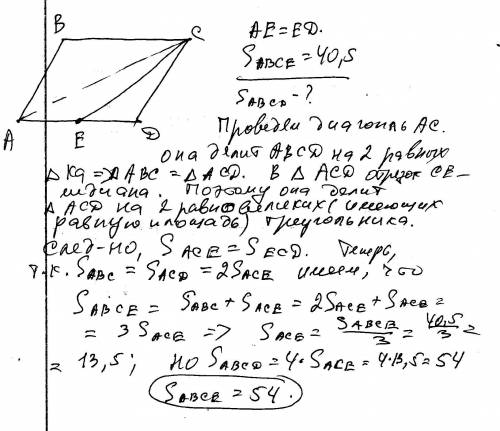 B
C
A
E
D
AE = ED.
S ABCE = 40,5
S ABCD - ?
Проведём диагональ AC.
она делит ABCD на 2 равных
△ ка => △ ABC = △ ACD. В △ ACD отрезок CE -
медиана. Поэтому она делит
△ ACD на 2 равновеликих (имеющих
равную площадь) треугольника.
След-но, S ACE = S ECD. Теперь,
т.к. S ABC = S ACD = 2S ACE имеем, что
S ABCE = S ABC + S ACE = 2S ACE + S ACE =
= 3 S ACE => S ACE = S ABCE / 3 = 40,5 / 3 =
= 13,5; но S ABCD = 4·S ACE = 4·13,5 = 54
S ABCE = 54.